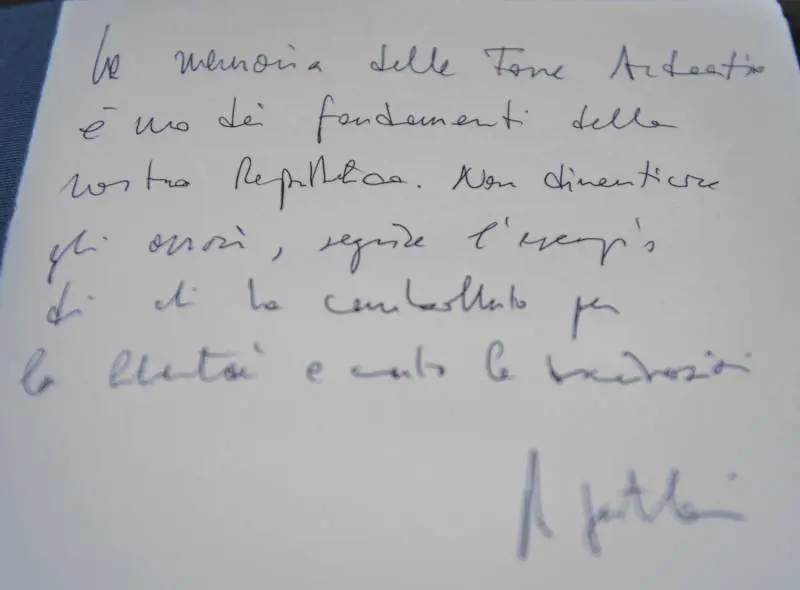 La memoria delle Fosse Ardeatine
è uno dei fondamenti della
nostra Repubblica. Non dimenticare
gli orrori, seguire l'esempio
di chi ha combattuto per
la libertà e contro le